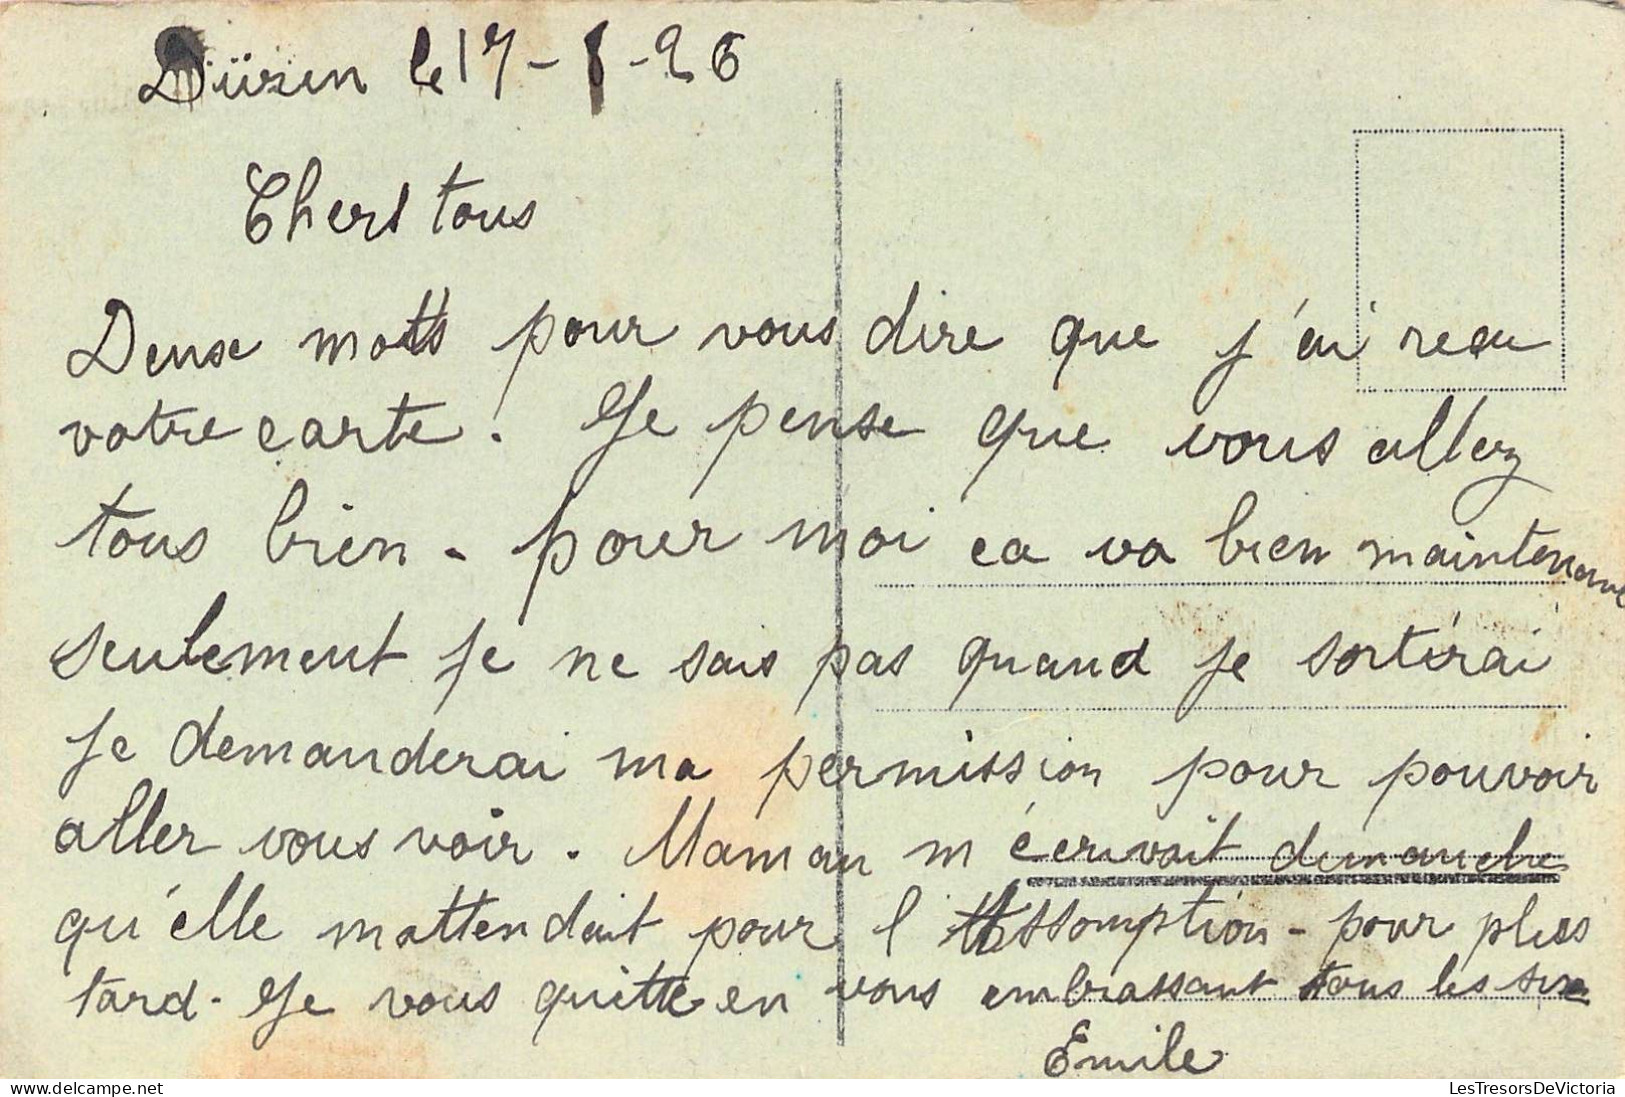 Düren le 17-8-26
Chers tous
Deux mots pour vous dire que j'ai recu
votre carte. Je pense que vous allez
tous bien - pour moi ca va bien maintenant
seulement je ne sais pas quand je sortirai
je demanderai ma permission pour pouvoir
aller vous voir. Maman m'écrivait dimanche
qu'elle mattendait pour l'Assomption - pour plus
tard. Je vous quitte en vous embrassant tous les six
Emile
LesTresorsDeVictoria